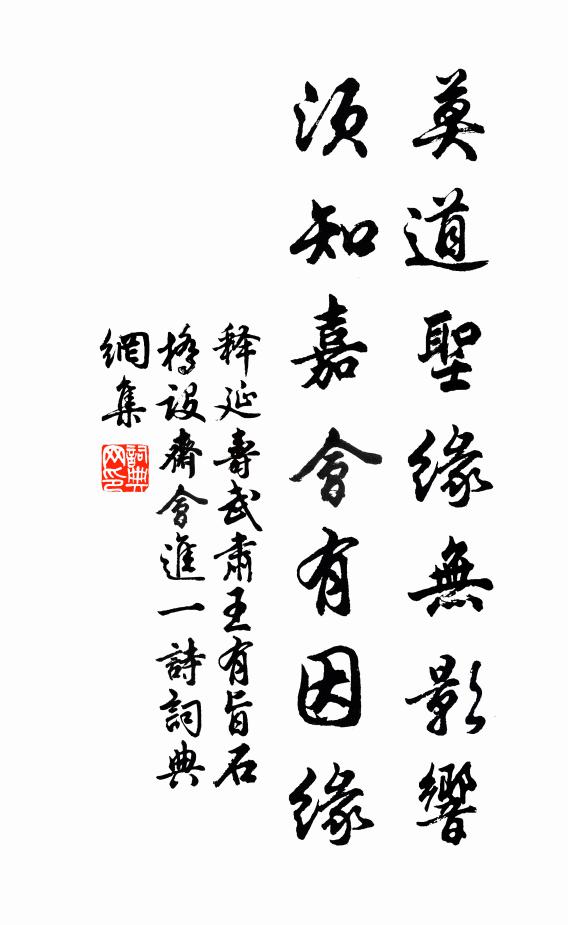 莫道聖緣無影響
須知嘉會有因緣
释延壽武肅王有旨石
橋設齋會進一詩詞典
網集
詞典网印